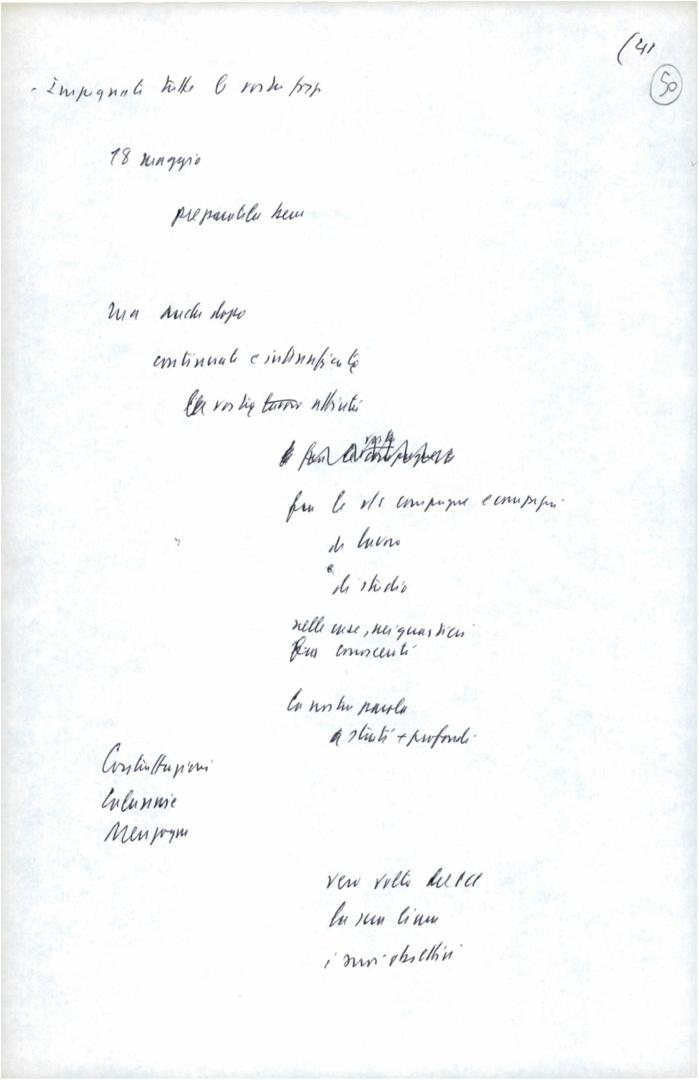 (41
50
- Impegnate tutte le vostre forze
18 maggio
preparatela bene
Ma anche dopo
continuate e intensificate
la vostra lavoro attività
fra le
fra le v/s compagne e compagni
di lavoro
e
di studio
nelle case, nei quartieri
fra conoscenti
la nostra parola
a strati + profondi
Contraffazioni
Calunnie
Menzogne
vero volto del PCI
la sua linea
i suoi obiettivi